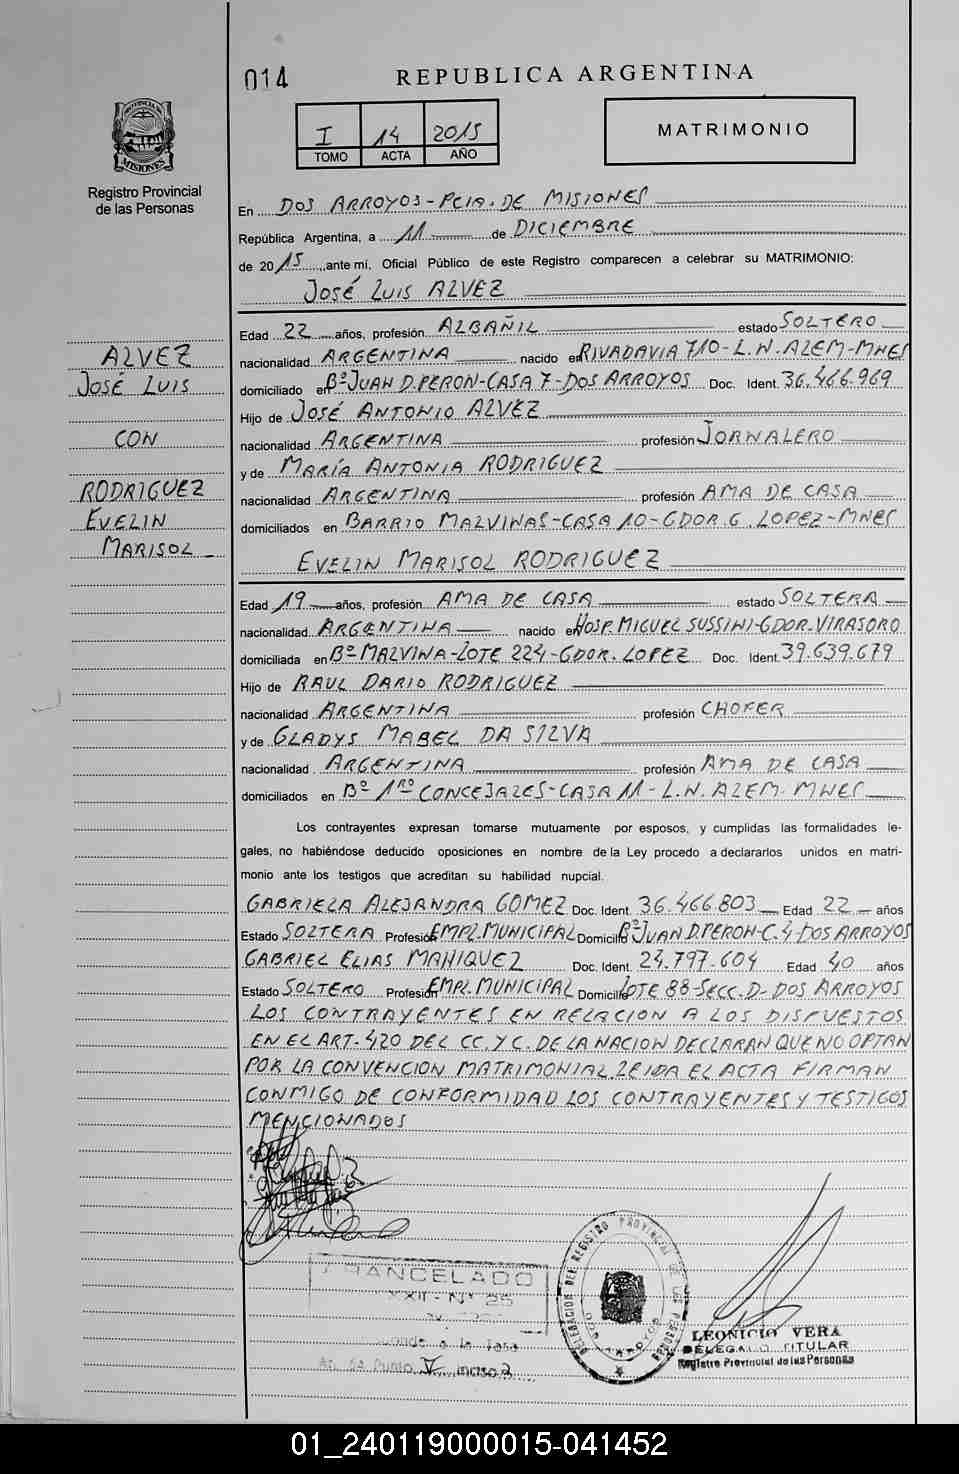 014
REPUBLICA ARGENTINA
I 14 2015
TOMO ACTA AÑO
MATRIMONIO
PROVINCIA DE
MISIONES
Registro Provincial
de las Personas
En DOS ARROYOS-PCIA. DE MISIONES
República Argentina, a 11 de DICIEMBRE
de 2015, ante mí, Oficial Público de este Registro comparecen a celebrar su MATRIMONIO:
JOSÉ LUIS ALVEZ
ALVEZ
JOSÉ LUIS
CON
RODRIGUEZ
EVELIN
MARISOL
Edad 22 años, profesión ALBAÑIL estado SOLTERO
nacionalidad ARGENTINA nacido en RIVADAVIA 710-L.N.ALEM-MNES
domiciliado en Bº JUAN D.PERON-CASA 7-DOS ARROYOS Doc. Ident. 36.466.969
Hijo de JOSÉ ANTONIO ALVEZ
nacionalidad ARGENTINA profesión JORNALERO
y de MARÍA ANTONIA RODRIGUEZ
nacionalidad ARGENTINA profesión AMA DE CASA
domiciliados en BARRIO MALVINAS-CASA 10-GDOR.G. LOPEZ-MNES
EVELIN MARISOL RODRIGUEZ
Edad 19 años, profesión AMA DE CASA estado SOLTERA
nacionalidad ARGENTINA nacido en HOSP.MIGUEL SUSSINI-GDOR.VIRASORO
domiciliada en Bº MALVINA-LOTE 224-GDOR.LOPEZ Doc. Ident. 39.639.679
Hijo de RAUL DARIO RODRIGUEZ
nacionalidad ARGENTINA profesión CHOFER
y de GLADYS MABEL DA SILVA
nacionalidad ARGENTINA profesión AMA DE CASA
domiciliados en Bº 1RO CONCEJALES-CASA 11-L.N.ALEM-MNES
Los contrayentes expresan tomarse mutuamente por esposos, y cumplidas las formalidades le-
gales, no habiéndose deducido oposiciones en nombre de la Ley procedo a declararlos unidos en matri-
monio ante los testigos que acreditan su habilidad nupcial.
GABRIELA ALEJANDRA GOMEZ Doc. Ident. 36.466.803 Edad 22 años
Estado SOLTERA Profesión EMPL.MUNICIPAL Domicilio Bº JUAN D.PERON-C.4-DOS ARROYOS
GABRIEL ELIAS MAHIQUEZ Doc. Ident. 24.797.604 Edad 40 años
Estado SOLTERO Profesión EMPL.MUNICIPAL Domicilio LOTE 88-SECC.D-DOS ARROYOS
LOS CONTRAYENTES EN RELACION A LOS DISPUESTOS
EN EL ART. 420 DEL CC. Y C. DE LA NACION DECLARAN QUE NO OPTAN
POR LA CONVENCION MATRIMONIAL.LEIDA EL ACTA FIRMAN
CONMIGO DE CONFORMIDAD LOS CONTRAYENTES Y TESTIGOS
MENCIONADOS
DELEGACION DEL REGISTRO PROVINCIAL DE LAS PERSONAS
DOS ARROYOS
CANCELADO
XXII-Nº 25
a la Tasa
Punto V inciso 2
LEONICIO VERA
DELEGADO TITULAR
Registro Provincial de las Personas
01_240119000015-041452